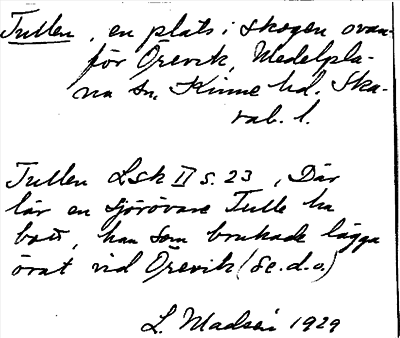 Tullen, en plats i skogen ovan-
för Örevik, Medelpla-
na sn, Kinne hd. Ska-
rab. l.
Tullen Lsk II s. 23, Där
lär en sjörövare Tulle ha
bott, han som brukade lägga
örat vid Örevik (se.d.o.)
L. Madsén 1929